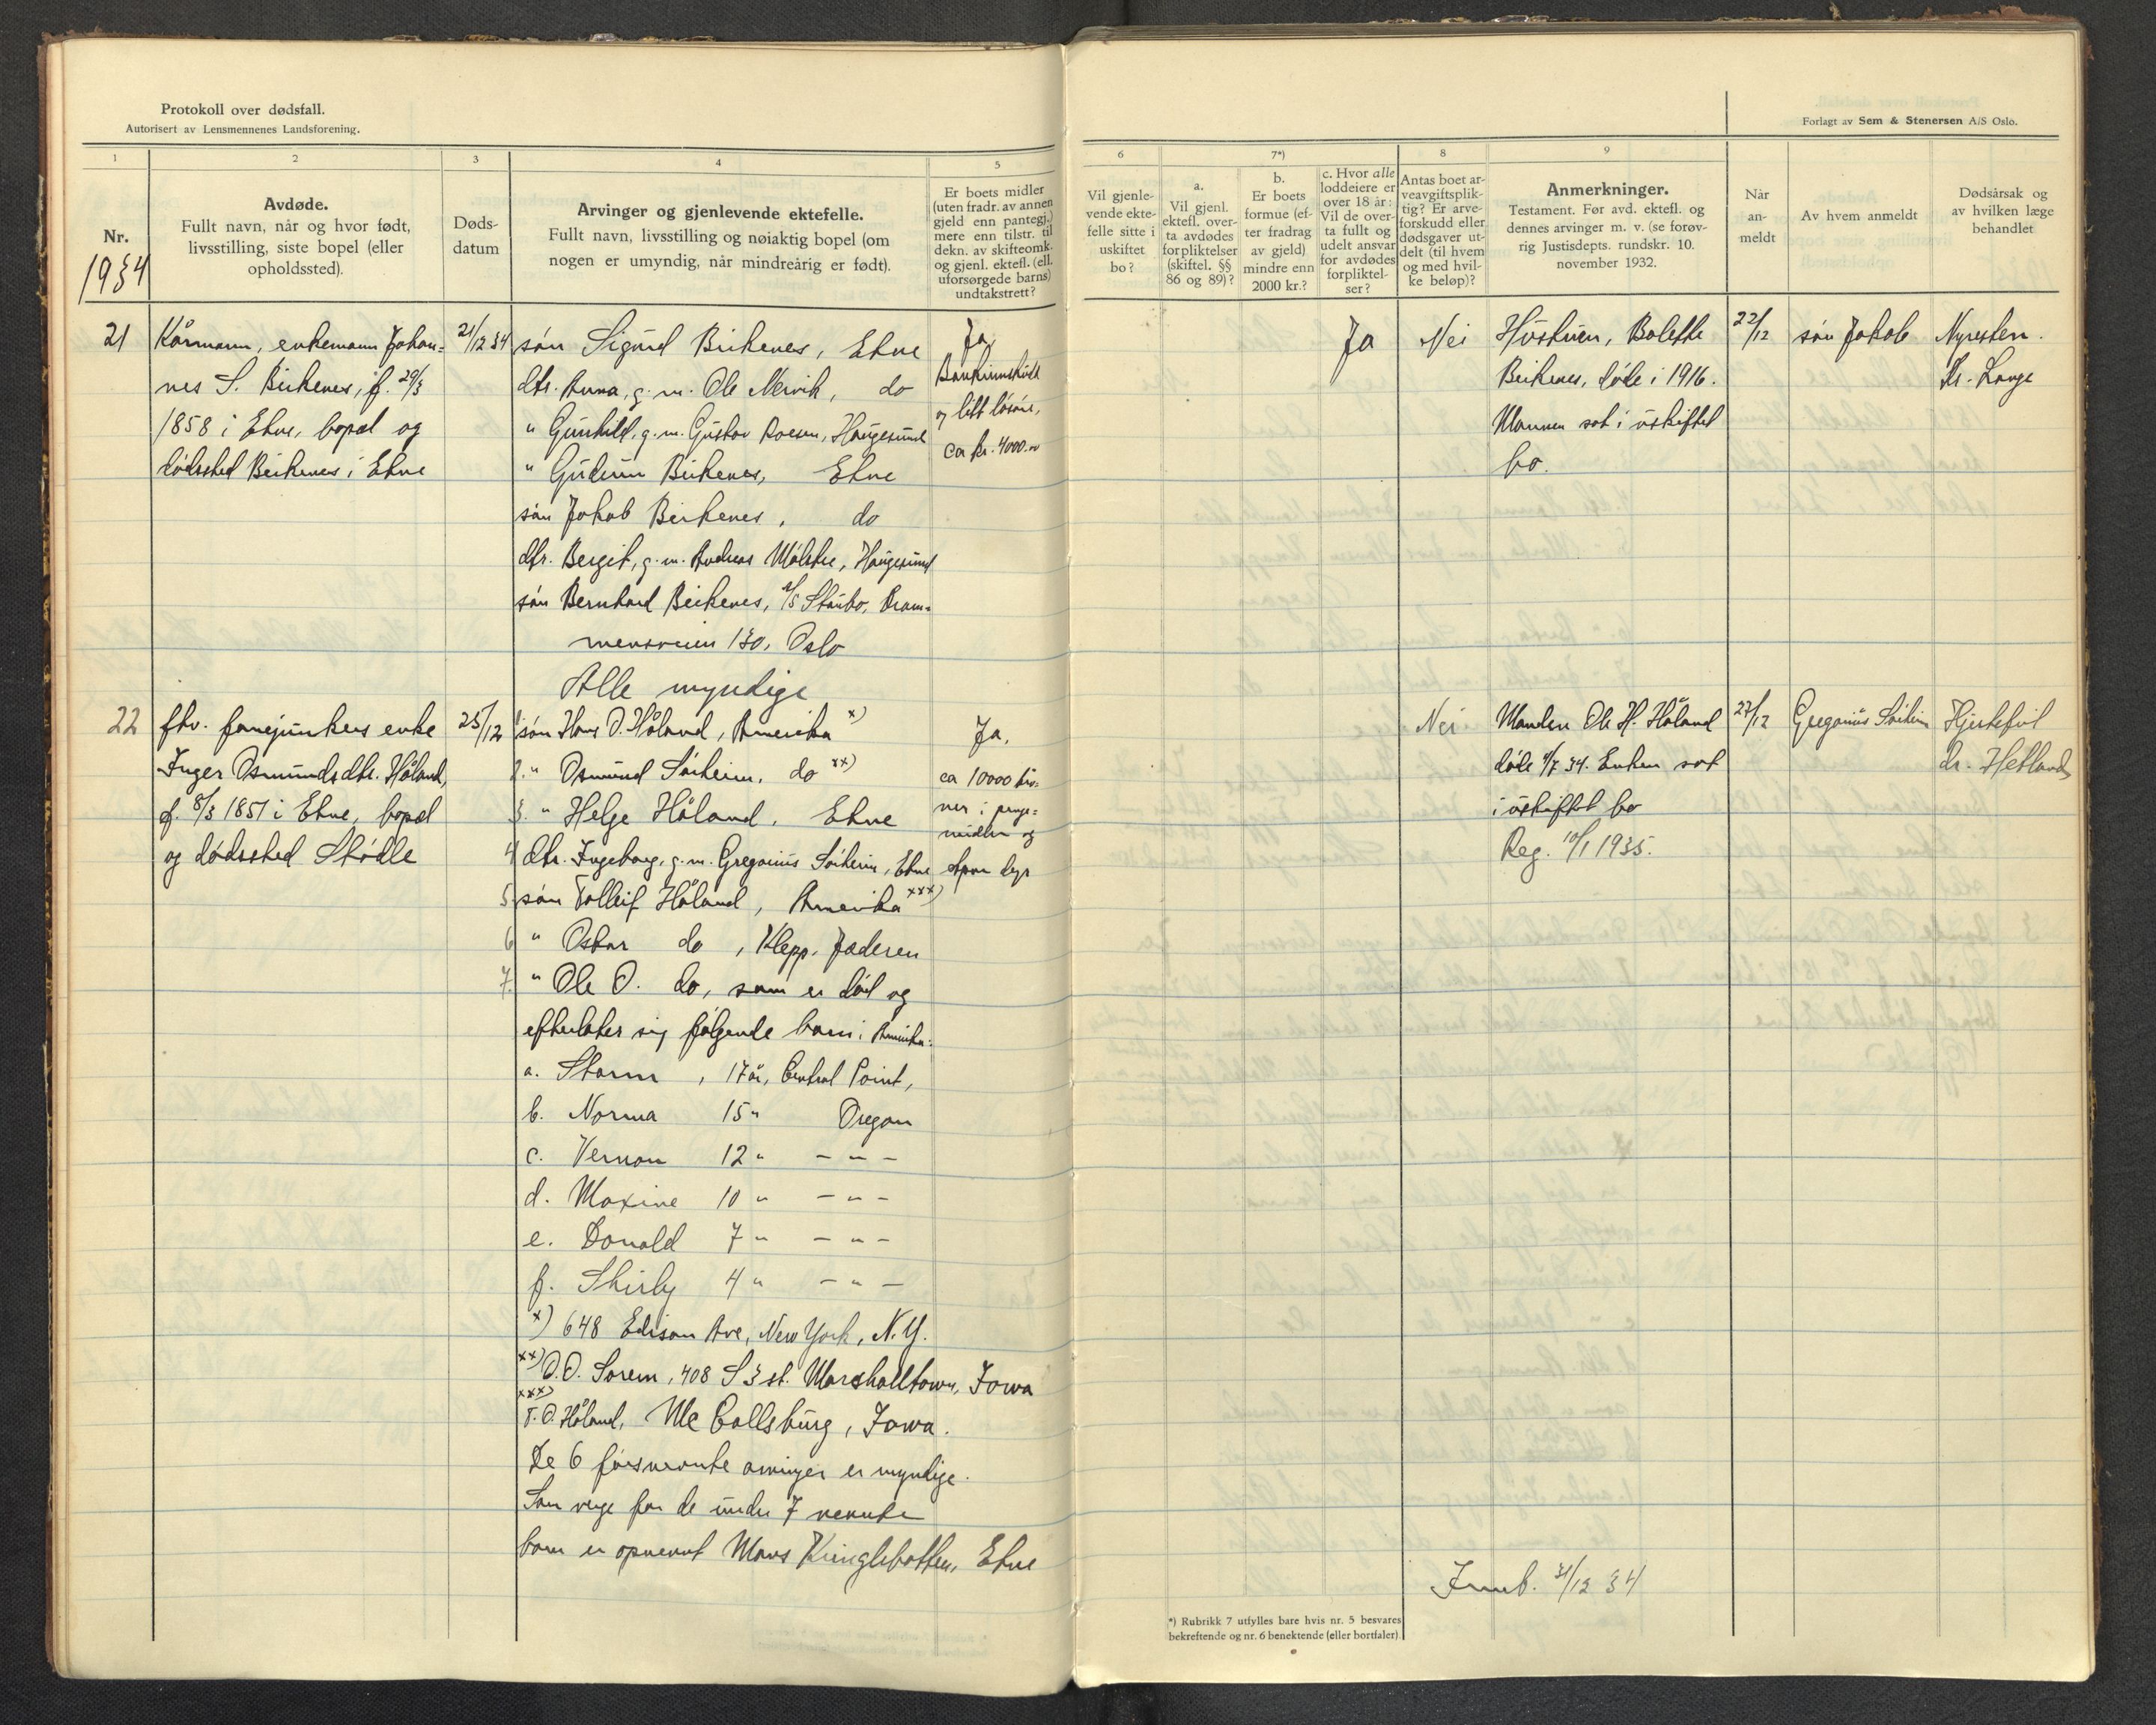 Protokoll over dødsfall.
Autorisert av Lensmennenes Landsforening.
1
2
3
4
5
Nr.
1934
Avdøde.
Fullt navn, når og hvor født,
livsstilling, siste bopel (eller
opholdssted).
Døds-
datum
Arvinger og gjenlevende ektefelle.
Fullt navn, livsstilling og nøiaktig bopel (om
nogen er umyndig, når mindreårig er født).
Er boets midler
(uten fradr. av annen
gjeld enn pantegj.)
mere enn tilstr. til
dekn. av skifteomk.
og gjenl. ektefl. (ell.
uforsørgede barns)
undtakstrett?
21
Kårmann, enkemann Johan-
nes S. Birkenes, f. 29/3
1858 i Etne, bopel og
dødssted Birkenes i Etne
21/12 34
søn Sigurd Birkenes, Etne
dtr. Anna, g.m. Ole Nervik, do
" Gunhild, g.m. Gustav Roesen, Haugesund
" Gudrun Birkenes, Etne
søn Jakob Birkenes, do
dtr. Bergit, g.m. Andreas Mølstre, Haugesund
søn Bernhard Birkenes, Staubo, Dram-
mensveien 130, Oslo
Alle myndige
Ja,
Bankinnskudd
og litt løsøre,
ca kr. 4000.00
22
fhv. fanejunkers enke
Inger Osmundsdtr. Håland,
f. 8/3 1851 i Etne, bopel
og dødssted Stødle
25/12
1. søn Hans O. Håland, Amerika x)
2. " Osmund Sørheim, do xx)
3. " Helge Håland, Etne
4 dtr. Ingeborg, g.m. Gregorius Sørheim, Etne
5. søn Tolleif Håland, Amerika xxx)
6 " Oskar do, Klepp, Jæderen
7. " Ole O. do, som er død og
efterlater sig følgende barn i Amerika:
a. Storm, 17 år, Central Point,
b. Norma 15 " Oregon
c. Vernon 12 " - " -
d. Maxine 10 " - " -
e. Donald 7 " - " -
f. Shirly 4 " - " -
x) 648 Edison Ave, New York, N.Y.
xx) O.O. Sorem, 408 S 3 st. Marshalltown, Iowa
xxx) T.O. Håland, Mc Callsburg, Iowa.
De 6 førsnevnte arvinger er myndige.
Som verge for de under 7 nevnte
barn er opnevnt Mons Kringlebotten, Etne
Ja,
ca 10000 kro-
ner i penge-
midler og
6
7*)
8
9
Forlagt av Sem & Stenersen A/S Oslo.
Vil gjenle-
vende ekte-
felle sitte i
uskiftet
bo?
a.
Vil gjenl.
ektefl. over-
ta avdødes
forpliktelser
(skiftel. §§
86 og 89)?
b.
Er boets
formue (ef-
ter fradrag
av gjeld)
mindre enn
2000 kr.?
c. Hvor alle
loddeiere er
over 18 år:
Vil de over-
ta fullt og
udelt ansvar
for avdødes
forpliktel-
ser?
Antas boet ar-
veavgiftsplik-
tig? Er arve-
forskudd eller
dødsgaver ut-
delt (til hvem
og med hvil-
ke beløp)?
Anmerkninger.
Testament. Før avd. ektefl. og
dennes arvinger m. v. (se forøv-
rig Justisdepts. rundskr. 10.
november 1932.
Når
an-
meldt
Av hvem anmeldt
Dødsårsak og
av hvilken læge
behandlet
Ja
Nei
Hustruen, Bolette
Birkenes, døde i 1916.
Mannen sat i uskiftet
bo.
22/12
søn Jakob
Dr. Lange
Nei
Manden Ole H. Håland
døde 4/7 34. Enken sat
i uskiftet bo
Reg. 10/1 1935.
27/12
Gregorius Sørheim
Hjertefeil
dr. Hetland
Innb. 31/12 34
*) Rubrikk 7 utfylles bare hvis nr. 5 besvares
bekreftende og nr. 6 benektende (eller bortfaler).